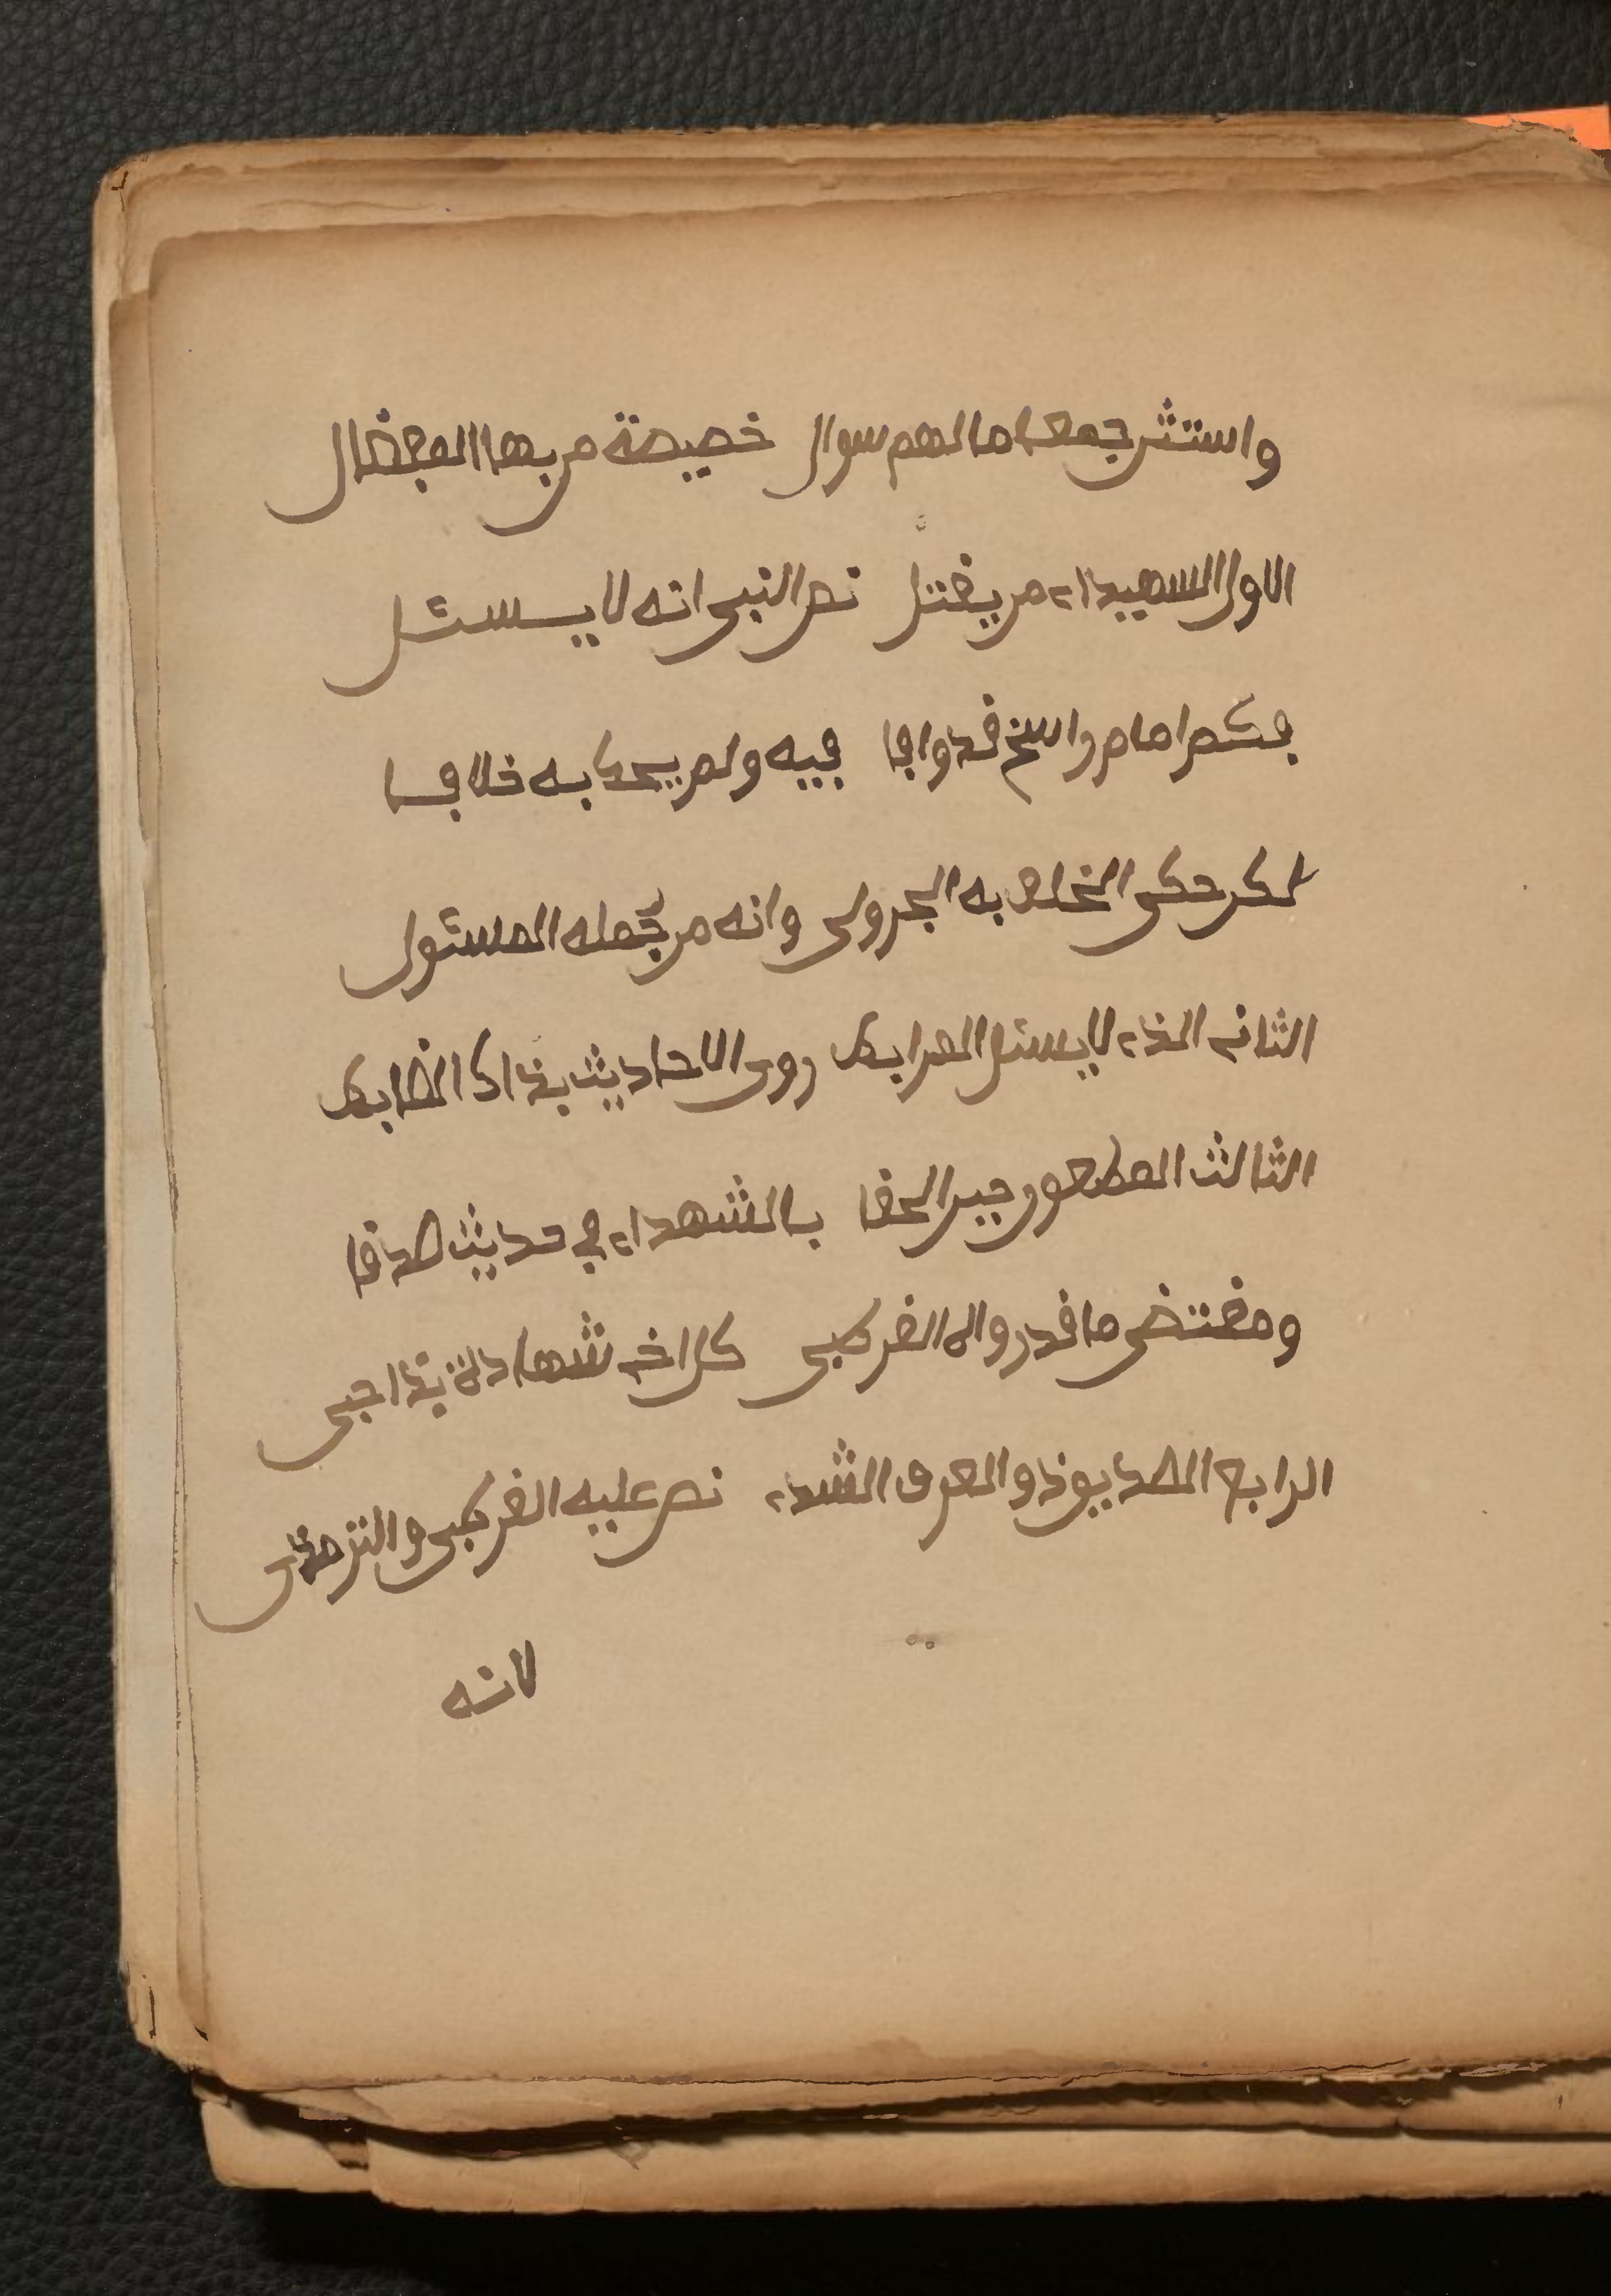 واستثن جمعا ما لهم سوال خصيصة من بها المفضال
الاول الشهيداء من يقتل نص النبي انه لا يسئل
فكم امام راسخ قد وافا فيه ولم يحك به خلافا
لكن حكى الخلاف به الجزولي وانه من جمله المسئول
الثاني الذاء لا يسئل المرابط روى الاحاديث بذاك الضابط
الثالث المطعون حين الحقا بالشهداء في حديث صدقا
ومقتضى ما قد رواه القرطبي كل اخي شهادة بذا حبي
الرابع الصديق ذو العرف الشذء نص عليه القرطبي والترمذي
لانه